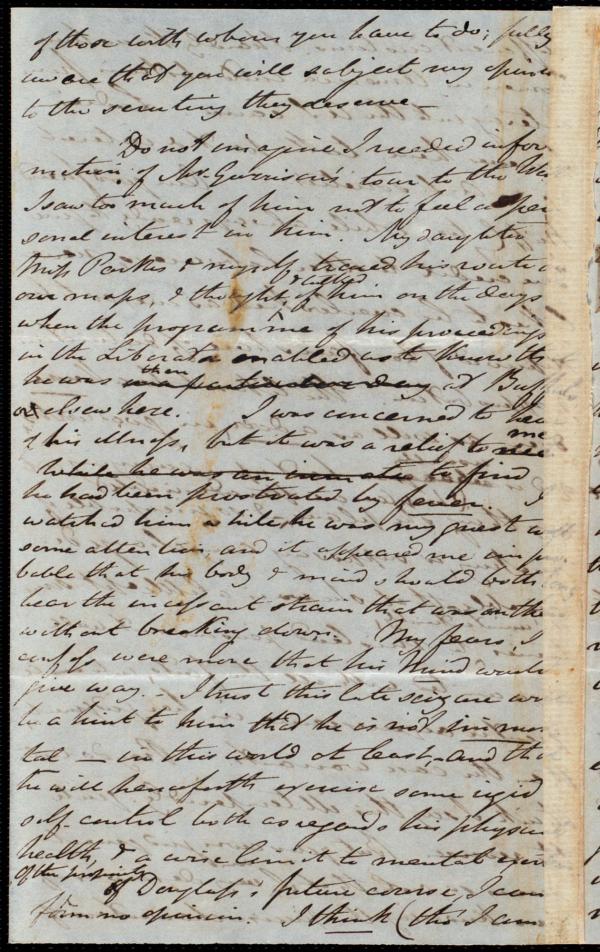 of those with whom you have to do; fully
aware that you will subject my opinio
to the scrutiny they deserve —
Do not imagine I needed infor
mation of Mr. Garrison's tour to the We
I saw too much of him not to feel a per
sonal interest in him. My daughter
Miss Parkes & myself traced his route o
our maps, & thought, & talked of him on the days
when the programme of his proceedings
in the Liberator enabled us to know th
he was then in a particular day at Buff
or elsewhere. I was concerned to hea
of his illness, but it was a relief to me
while he was an inmate to find
he had been prostrated by fever. I
watched him while he was my guest w
some attention, and it appeared me impro
bable that his body & mind should both
bear the incessant strain that was on the
without breaking down. My fears, I
confess were more that his Mind would
give way. — I trust this late seizure wo
be a hint to him that he is not immor
tal — in this world at least, and tha
he will henceforth exercise some rigid
self control both as regards his physica
health, & a wise limit to mental exer
of the propriety
of Douglass's future course, I can
form no opinion. I think (tho' I am